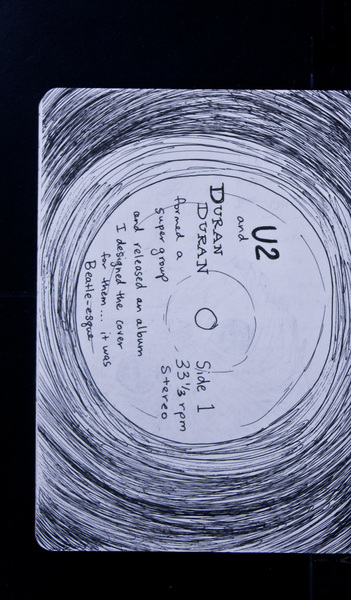 U2
and
DURAN
DURAN
formed a
super group
Side 1
33 1/3 rpm
Stereo
and released an album
I designed the cover
for them... it was
Beatle-esque